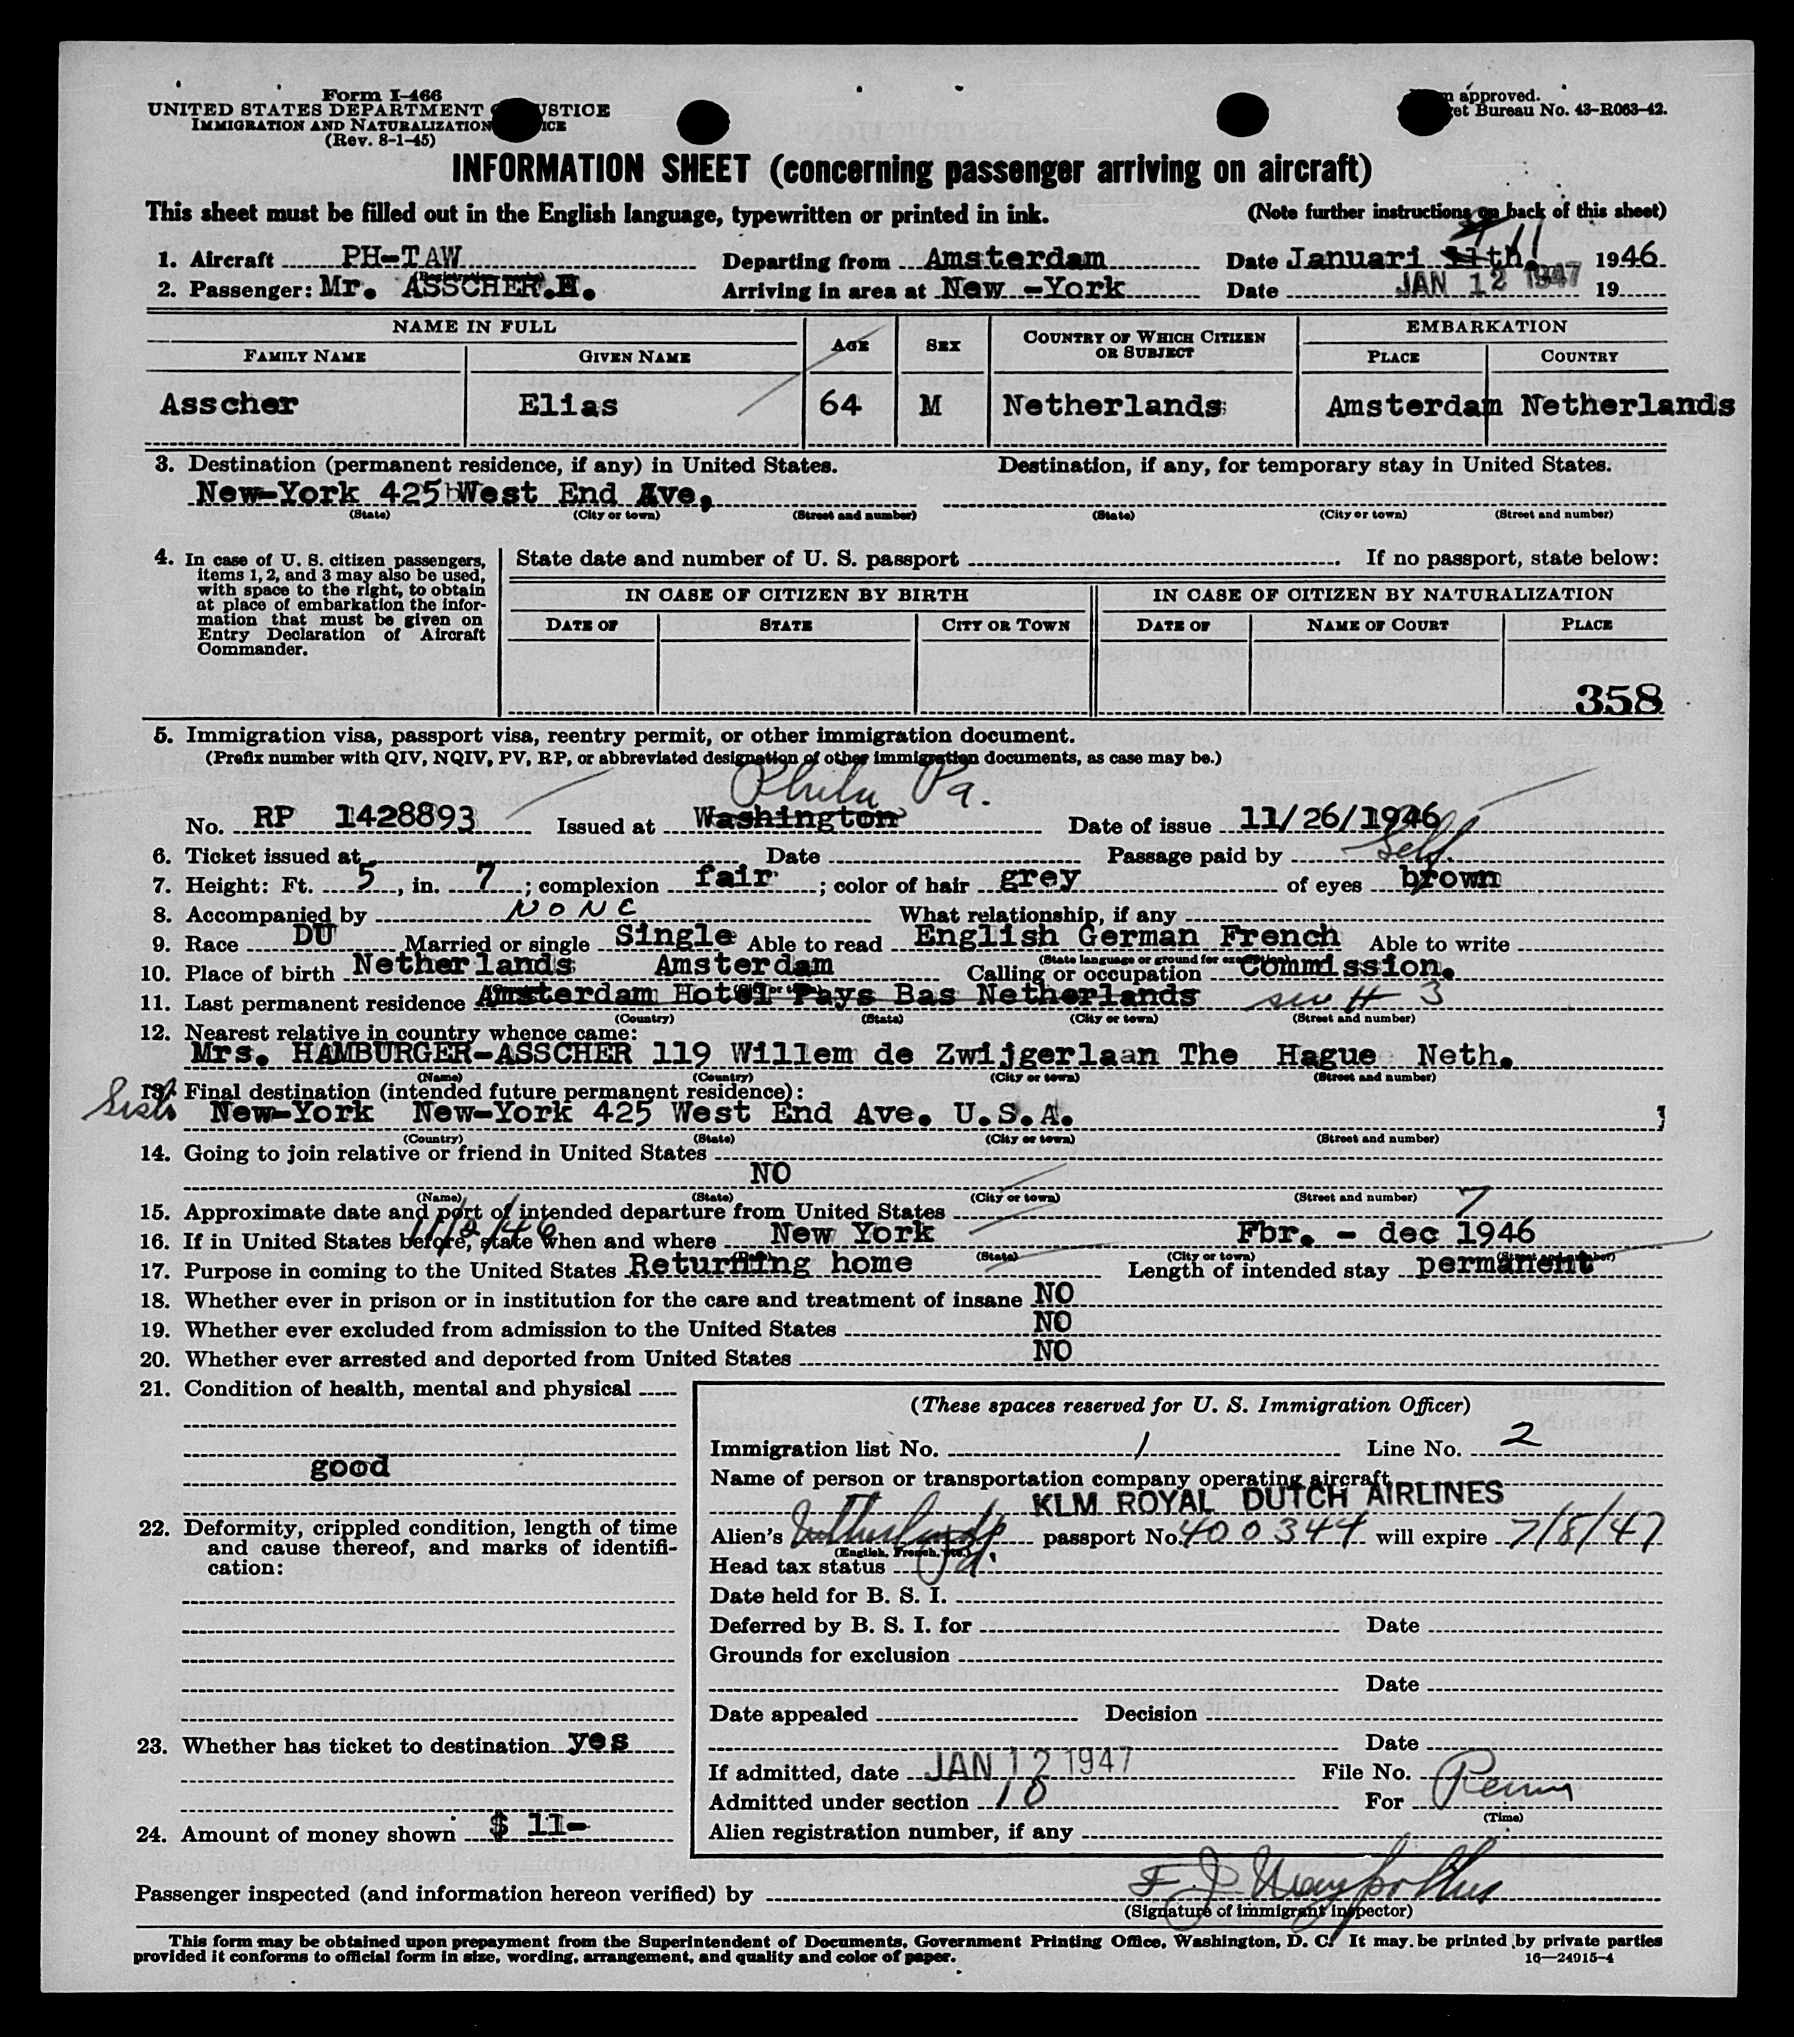 Form I-466
UNITED STATES DEPARTMENT USTICE
IMMIGRATION AND NATURALIZATION ICE
(Rev. 8-1-45)
approved.
et Bureau No. 43-R063-42.
INFORMATION SHEET (concerning passenger arriving on aircraft)
This sheet must be filled out in the English language, typewritten or printed in ink. (Note further instructions on back of this sheet)
11
1. Aircraft PH-TAW Departing from Amsterdam Date Januari 11th. 1946
(Registration marks)
2. Passenger: Mr. ASSCHER.E. Arriving in area at New -York Date JAN 12 1947 19
NAME IN FULL AGE SEX COUNTRY OF WHICH CITIZEN OR SUBJECT EMBARKATION
FAMILY NAME GIVEN NAME PLACE COUNTRY
Asscher Elias 64 M Netherlands Amsterdam Netherlands
3. Destination (permanent residence, if any) in United States. Destination, if any, for temporary stay in United States.
New-York 425 West End Ave,
(State) (City or town) (Street and number) (State) (City or town) (Street and number)
4. In case of U. S. citizen passengers, items 1, 2, and 3 may also be used, with space to the right, to obtain at place of embarkation the information that must be given on Entry Declaration of Aircraft Commander.
State date and number of U. S. passport If no passport, state below:
IN CASE OF CITIZEN BY BIRTH IN CASE OF CITIZEN BY NATURALIZATION
DATE OF STATE CITY OR TOWN DATE OF NAME OF COURT PLACE
358
5. Immigration visa, passport visa, reentry permit, or other immigration document.
(Prefix number with QIV, NQIV, PV, RP, or abbreviated designation of other immigration documents, as case may be.)
Phila Pa.
No. RP 1428893 Issued at Washington Date of issue 11/26/1946
6. Ticket issued at Date Passage paid by Self
7. Height: Ft. 5, in. 7; complexion fair; color of hair grey of eyes brown
8. Accompanied by NONE What relationship, if any
9. Race DU Married or single Single Able to read English German French Able to write
(State language or ground for exemption)
10. Place of birth Netherlands Amsterdam Calling or occupation Commission.
(Country) (City or town)
11. Last permanent residence Amsterdam Hotel Pays Bas Netherlands see # 3
(Country) (State) (City or town) (Street and number)
12. Nearest relative in country whence came:
Mrs. HAMBURGER-ASSCHER 119 Willem de Zwijgerlaan The Hague Neth.
(Name) (Country) (City or town) (Street and number)
13. Final destination (intended future permanent residence):
New-York New-York 425 West End Ave. U.S.A.
(Country) (State) (City or town) (Street and number)
14. Going to join relative or friend in United States
NO
(Name) (State) (City or town) (Street and number)
15. Approximate date and port of intended departure from United States
11/2/46 7
16. If in United States before, state when and where New York Fbr. - dec 1946
(Date) (State) (City or town) (Street and number)
17. Purpose in coming to the United States Returning home Length of intended stay permanent
18. Whether ever in prison or in institution for the care and treatment of insane NO
19. Whether ever excluded from admission to the United States NO
20. Whether ever arrested and deported from United States NO
21. Condition of health, mental and physical
good
22. Deformity, crippled condition, length of time and cause thereof, and marks of identification:
23. Whether has ticket to destination yes
24. Amount of money shown $ 11-
(These spaces reserved for U. S. Immigration Officer)
Immigration list No. 1 Line No. 2
Name of person or transportation company operating aircraft
KLM ROYAL DUTCH AIRLINES
Alien's Netherlands passport No. 400344 will expire 7/8/47
(English, French, etc.)
Head tax status
Date held for B. S. I.
Deferred by B. S. I. for Date
Grounds for exclusion
Date
Date appealed Decision
Date
If admitted, date JAN 12 1947 File No.
Admitted under section 10 For Perm
(Time)
Alien registration number, if any
Passenger inspected (and information hereon verified) by F. J.
(Signature of immigrant inspector)
This form may be obtained upon prepayment from the Superintendent of Documents, Government Printing Office, Washington, D. C. It may be printed by private parties
provided it conforms to official form in size, wording, arrangement, and quality and color of paper.
16—24915-4